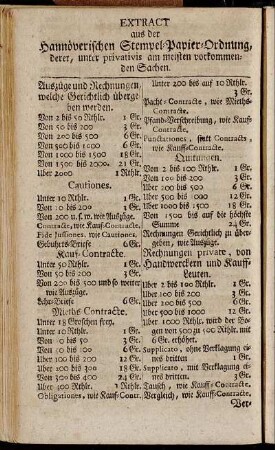 EXTRACT
aus der
Hannöverischen Stempel-Papier-Ordnung,
derer, unter privativis am meisten vorkommen-
den Sachen.
Auszüge und Rechnungen
welche Gerichtlich überge
ben werden.
Von 2 bis 50 Rthlr. 1 Gr.
Von 50 bis 200 3 Gr.
Von 200 bis 500 6 Gr.
Von 500 bis 1000 6 Gr.
Von 1000 bis 1500 18 Gr.
Von 1500 bis 2000 21 Gr.
Uber 2000 1 Rthlr.
Cautiones.
Unter 10 Rthlr. 1 Gr.
Von 10 bis 200 3 Gr.
Von 200 u. s. w. wie Auszüge.
Contracte, wie Kauf-Contracte.
Fide Jussiones, wie Cautiones.
Gebuhrts-Briefe 6 Gr.
Kauff-Contracte.
Unter 50 Rthlr. 1 Gr.
Von 50 bis 200 3 Gr.
Von 200 bis 500 und so weiter
wie Auszüge.
Lehr-Briefe 6 Gr.
Mieths-Contracte.
Unter 18 Groschen frey.
Unter 10 Rthlr. 1 Gr.
Von 10 bis 50 3 Gr.
Von 50 bis 100 6 Gr.
Uber 100 bis 200 12 Gr.
Uber 200 bis 300 18 Gr.
Von 300 bis 400 24 Gr.
Uber 300 Rthlr. 1 Rthlr.
Obligationes, wie Kauf-Contr.
Unter 200 bis auf 10 Rthlr.
3 Gr.
Pacht-Contracte, wie Mieths-
Contracte.
Pfand-Verschreibung, wie Kauff-
Contracte.
Punctationes, statt Contracts
wie Kauff-Contracte.
Quitungen.
Von 2 bis 100 Rthlr. 1 Gr.
Von 100 bis 200 3 Gr.
Uber 200 bis 500 6 Gr.
Uber 500 bis 1000 12 Gr.
Von 1000 bis 1500 18 Gr.
Von 1500 bis auf die höchste
Summe 24 Gr.
Rechnungen Gerichtlich zu über-
geben, wie Auszüge.
Rechnungen private, von
Handwerckern und Kauff-
Leuten.
Uber 2 bis 100 Rthlr. 1 Gr.
Uber 100 bis 200 3 Gr.
Uber 200 bis 500 6 Gr.
Uber 500 bis 1000 12 Gr.
Uber 1000 Rthlr. wird der Bo-
gen von 500 zu 500 Rthlr. mit
6 Gr. erhöhet.
Supplicato, ohne Verklagung ei-
nes dritten 1 Gr.
Supplicato, mit Verklagung ei-
nes dritten 3 Gr.
Tausch, wie Kauff-Contracte.
Vergleich, wie Kauff-Contracte.
Ver-